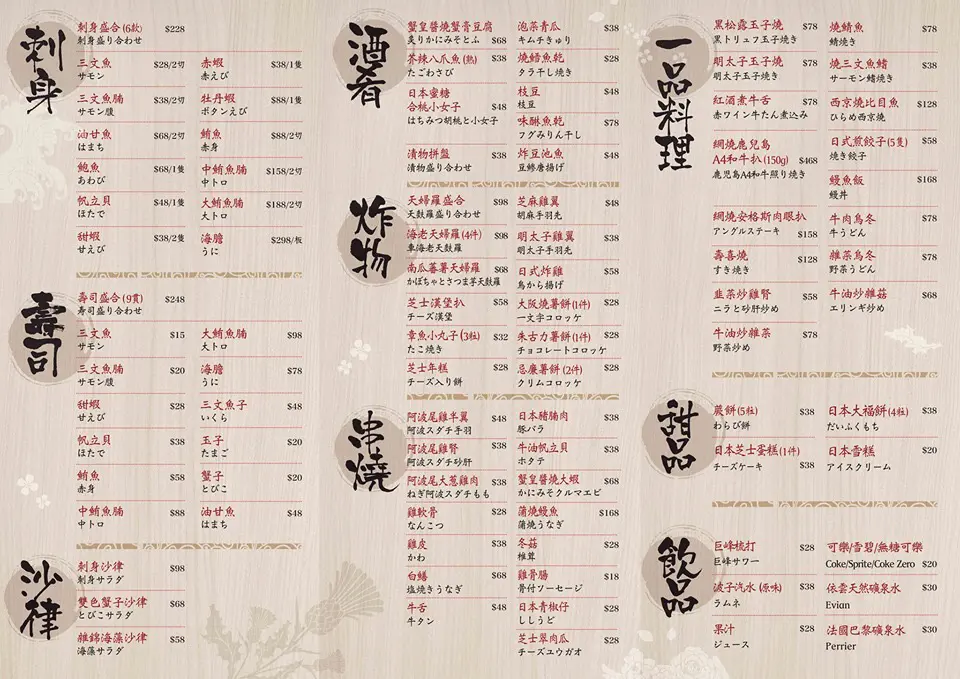 刺身
刺身盛合 (6款) $228
刺身盛り合わせ
三文魚 $28/2切
サモン
三文魚腩 $38/2切
サモン腹
油甘魚 $68/2切
はまち
鮑魚 $68/1隻
あわび
帆立貝 $48/1隻
ほたて
甜蝦 $38/2隻
甘えび
赤蝦 $38/1隻
赤えび
牡丹蝦 $88/1隻
ボタンえび
鮪魚 $88/2切
赤身
中鮪魚腩 $158/2切
中トロ
大鮪魚腩 $188/2切
大トロ
海膽 $298/板
うに
壽司
壽司盛合 (9貫) $248
寿司盛り合わせ
三文魚 $15
サモン
三文魚腩 $20
サモン腹
甜蝦 $28
甘えび
帆立貝 $38
ほたて
鮪魚 $58
赤身
中鮪魚腩 $88
中トロ
大鮪魚腩 $98
大トロ
海膽 $78
うに
三文魚子 $48
いくら
玉子 $20
たまご
蟹子 $20
とびこ
油甘魚 $48
はまち
沙律
刺身沙律 $98
刺身サラダ
雙色蟹子沙律 $68
とびこサラダ
雜錦海藻沙律 $58
海藻サラダ
酒肴
蟹皇醬燒蟹膏豆腐
炙りかにみそとふ $68
芥辣八爪魚 (熟) $38
たごわさび
日本蜜糖
合桃小女子 $48
はちみつ胡桃と小女子
漬物拼盤 $38
漬物盛り合わせ
泡菜青瓜 $38
キムチきゅり
燒鱈魚乾 $28
タラ干し焼き
枝豆 $48
枝豆
味醂魚乾 $78
フグみりん干し
炸豆池魚 $48
豆鯵唐揚げ
炸物
天婦羅盛合 $98
天麩羅盛り合わせ
海老天婦羅 (4件) $98
車海老天麩羅
南瓜蕃薯天婦羅 $68
かぼちゃとさつま芋天麩羅
芝士漢堡扒 $58
チーズ漢堡
章魚小丸子 (3粒) $32
たこ焼き
芝士年糕 $28
チーズ入り餅
芝麻雞翼 $48
胡麻手羽先
明太子雞翼 $38
明太子手羽先
日式炸雞 $58
鳥から揚げ
大阪燒薯餅(1件) $28
一文字コロッケ
朱古力薯餅(1件) $28
チョコレートコロッケ
忌廉薯餅 (2件) $28
クリムコロッケ
串燒
阿波尾雞半翼 $48
阿波スダチ手羽
阿波尾雞腎 $38
阿波スダチ砂肝
阿波尾大葱雞肉 $38
ねぎ阿波スダチもも
雞軟骨 $28
なんこつ
雞皮 $38
かわ
白鱔 $68
塩焼きうなぎ
牛舌 $48
牛タン
日本豬腩肉 $38
豚バラ
牛油帆立貝 $38
ホタテ
蟹皇醬燒大蝦 $68
かにみそクルマエビ
蒲燒鰻魚 $168
蒲焼うなぎ
冬菇 $28
椎茸
雞骨腸 $18
骨付ソーセージ
日本青椒仔 $28
ししうど
芝士翠肉瓜 $28
チーズユウガオ
一品料理
黑松露玉子燒 $78
黒トリュフ玉子焼き
明太子玉子燒 $78
明太子玉子焼き
紅酒煮牛舌 $78
赤ワイン牛たん煮込み
網燒鹿兒島
A4和牛扒 (150g) $468
鹿児島A4和牛照り焼き
網燒安格斯肉眼扒
アングルステーキ $158
壽喜燒 $128
すき焼き
韭菜炒雞腎 $58
ニラと砂肝炒め
牛油炒雜菜 $78
野菜炒め
燒鯖魚 $78
鯖焼き
燒三文魚鰭 $78
サーモン鰭焼き
西京燒比目魚 $128
ひらめ西京焼
日式煎餃子 (5隻) $58
焼き餃子
鰻魚飯 $168
鰻丼
牛肉烏冬 $78
牛うどん
雜菜烏冬 $78
野菜うどん
牛油炒雜菇 $68
エリンギ炒め
甜品
蕨餅 (5粒) $38
わらび餅
日本芝士蛋糕 (1件)
チーズケーキ $38
日本大福餅 (4粒) $38
だいふくもち
日本雪糕 $20
アイスクリーム
飲品
巨峰梳打 $28
巨峰サワー
波子汽水 (原味) $38
ラムネ
果汁 $28
ジュース
可樂/雪碧/無糖可樂
Coke/Sprite/Coke Zero $20
依雲天然礦泉水 $30
Evian
法國巴黎礦泉水 $30
Perrier